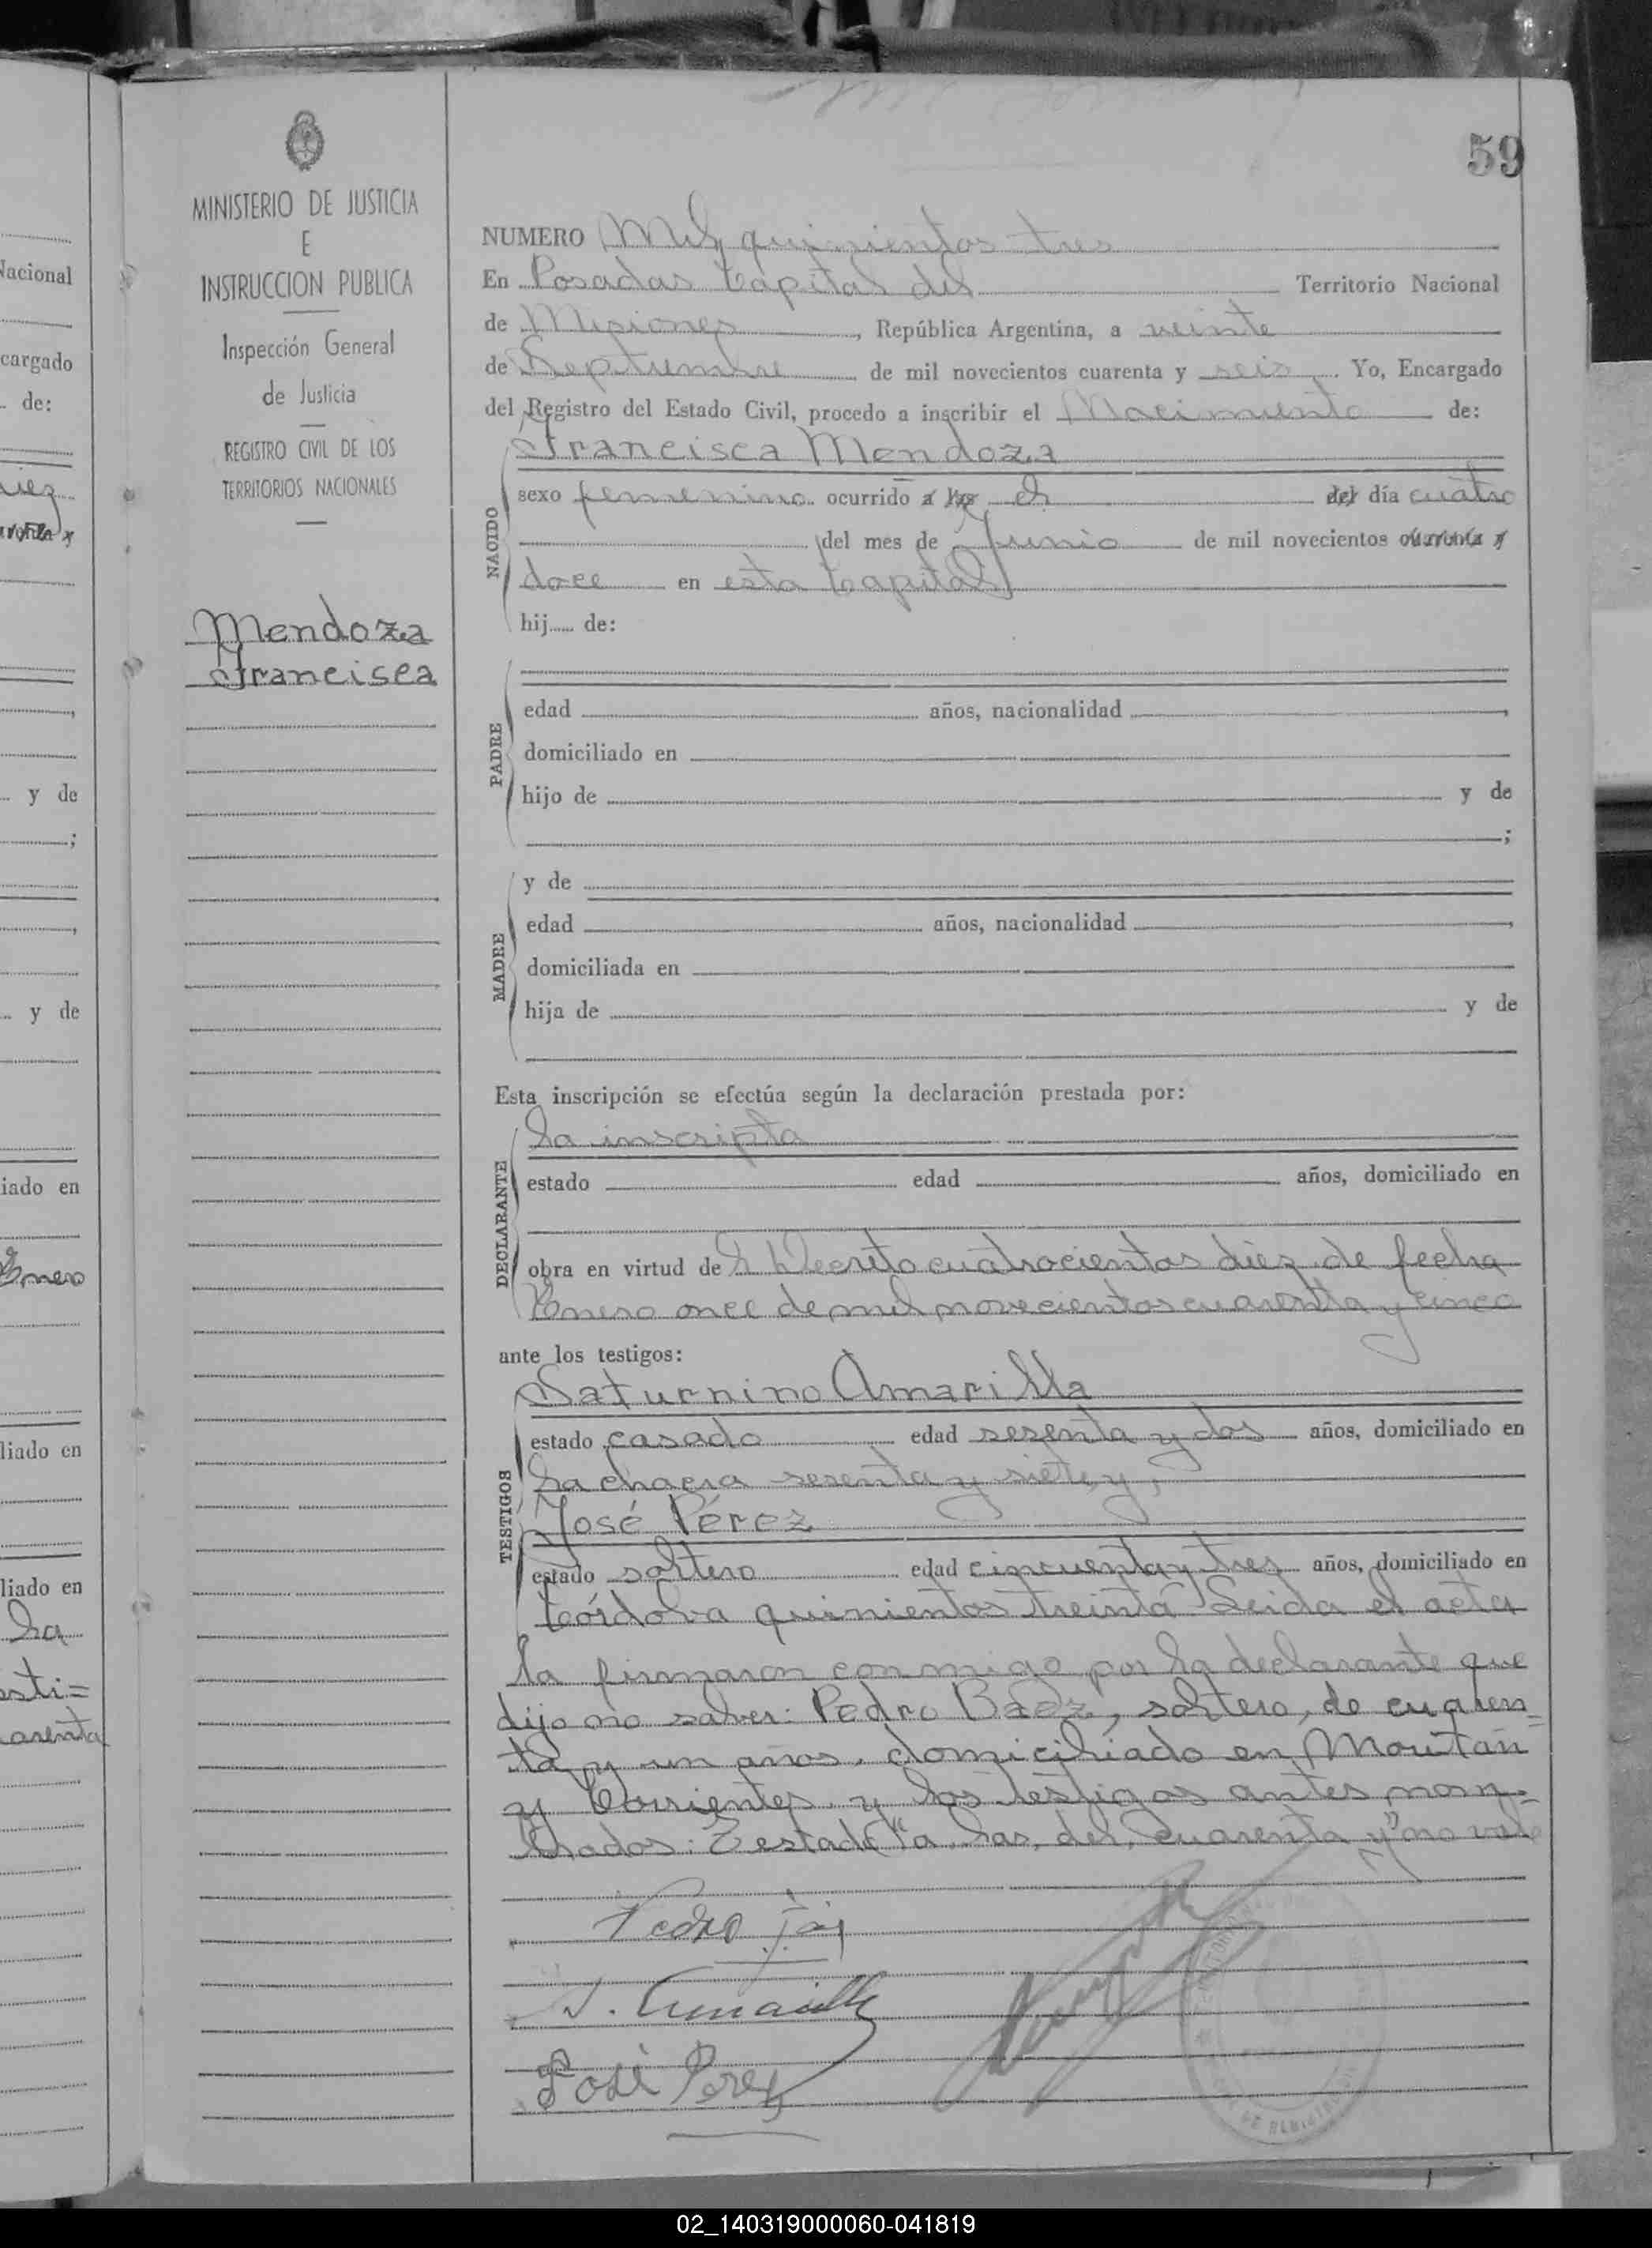 59
MINISTERIO DE JUSTICIA
E
INSTRUCCION PUBLICA
Inspección General
de Justicia
REGISTRO CIVIL DE LOS
TERRITORIOS NACIONALES
Mendoza
Francisca
NUMERO Mil quinientos tres
En Posadas Capital del Territorio Nacional
de Misiones, República Argentina, a veinte
de Septiembre de mil novecientos cuarenta y seis. Yo, Encargado
del Registro del Estado Civil, procedo a inscribir el Nacimiento de:
NACIDO
Francisca Mendoza
sexo femenino ocurrido a las el del día cuatro
del mes de Junio de mil novecientos cuarenta y
doce en esta Capital
hij...... de:
PADRE
edad años, nacionalidad ,
domiciliado en
hijo de y de
;
MADRE
y de
edad años, nacionalidad ,
domiciliada en
hija de y de
Esta inscripción se efectúa según la declaración prestada por:
DECLARANTE
La inscripta
estado edad años, domiciliado en
obra en virtud del Decreto cuatrocientos diez de fecha
Enero once de mil novecientos cuarenta y cinco
ante los testigos:
TESTIGOS
Saturnino Amarilla
estado casado edad sesenta y dos años, domiciliado en
La chacra sesenta y siete y,
José Pérez
estado soltero edad cincuenta y tres años, domiciliado en
Córdova quinientos treinta Leida el acta
la firmaron conmigo por la declarante que
dijo no saber: Pedro Báez, soltero, de cuaren=
ta y un años, domiciliado en Moritán
y Corrientes y los testigos antes nom=
brados: Testado "a las, del, cuarenta y" no vale
Pedro
S. Amarilla
José Perez
Nacional
cargado
de:
y de
;
y de
iado en
Enero
liado en
liado en
La
esti=
arenta
02_140319000060-041819